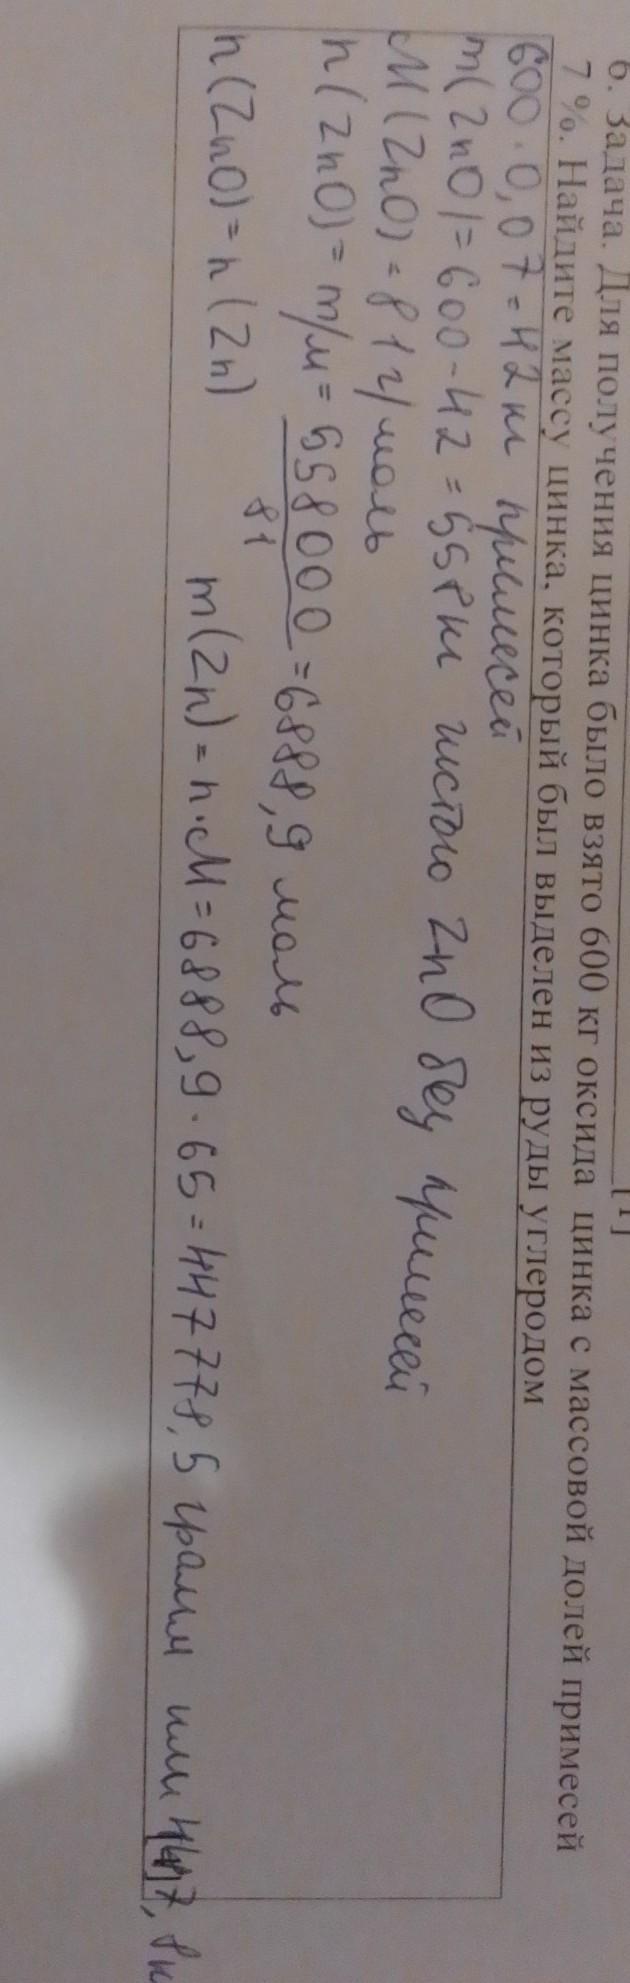 [1]
6. Задача. Для получения цинка было взято 600 кг оксида цинка с массовой долей примесей
7 %. Найдите массу цинка, который был выделен из руды углеродом
600 · 0,07 = 42 кг примесей
m(ZnO) = 600 - 42 = 558 кг чистого ZnO без примесей
M(ZnO) = 81 г/моль
n(ZnO) = m/M = 558000 = 6888,9 моль
81
n(ZnO) = n(Zn) m(Zn) = n·M = 6888,9 · 65 = 447778,5 грамм или 447,8 к